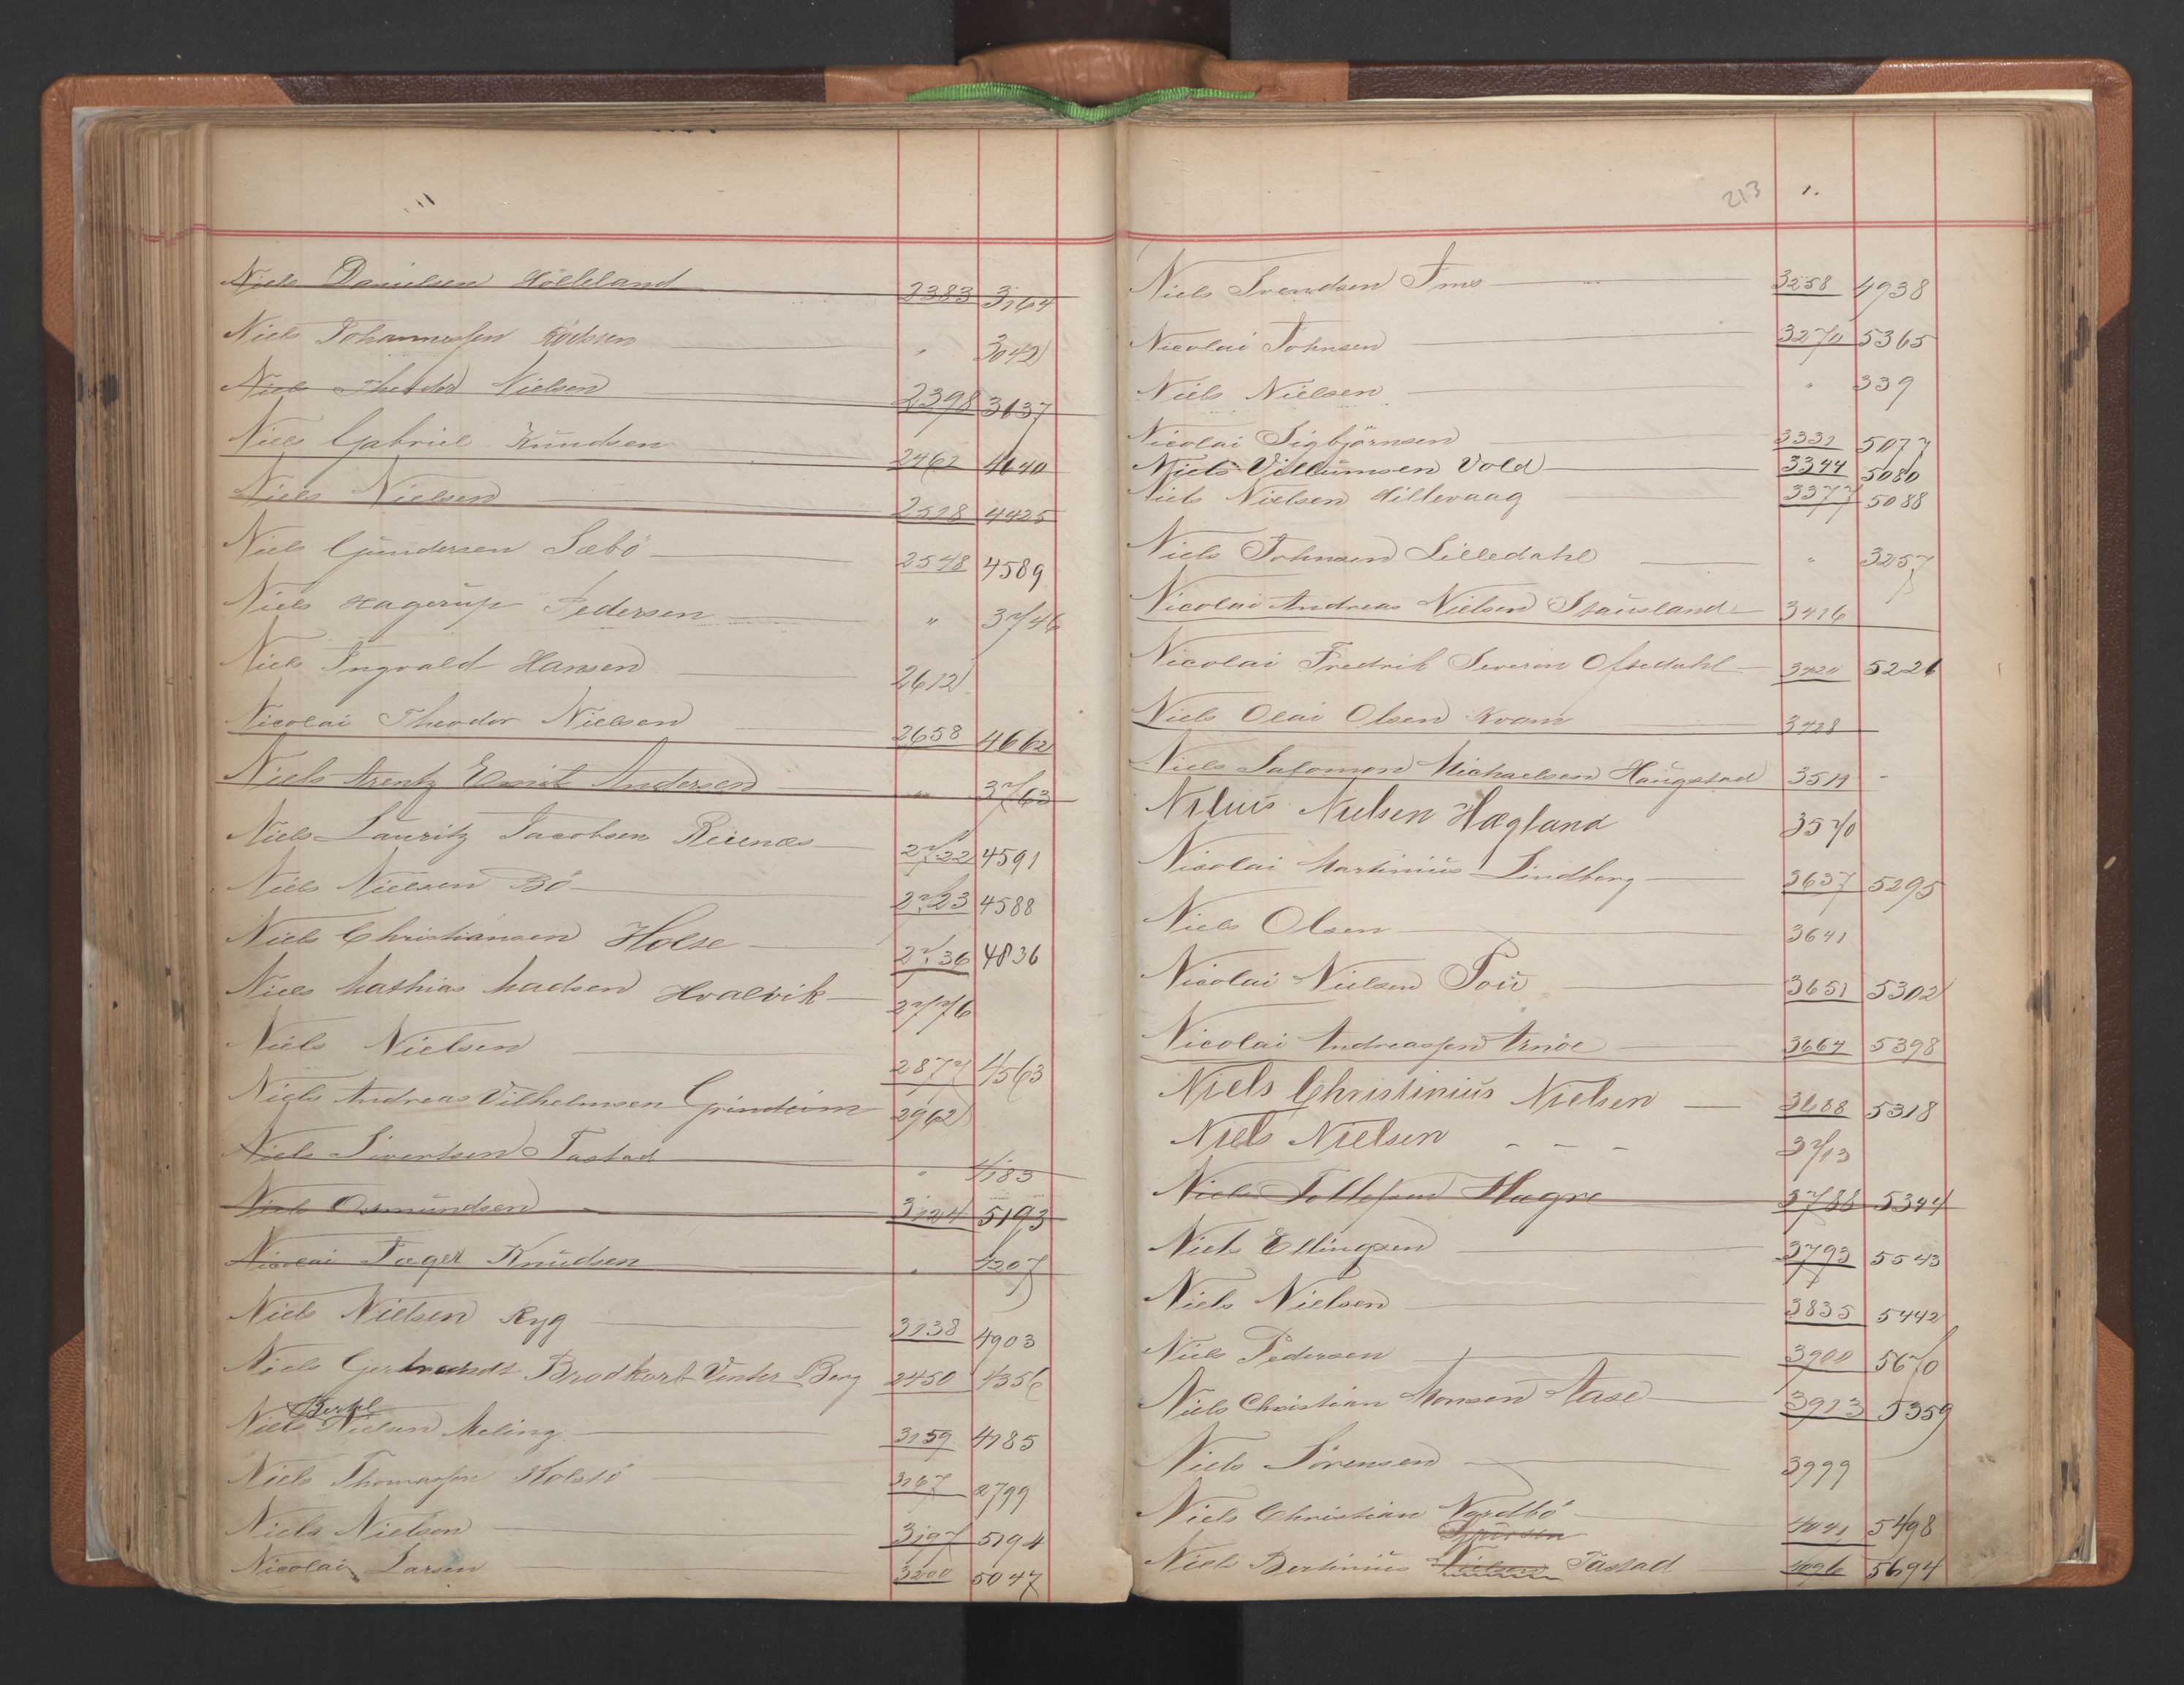 Niels Danielsen Hölleland 2383 3164
Niels Johannessen Rödssen " 3042
Niels Theodor Nielsen 2398 3637
Niels Gabriel Knudsen 2462 4640
Niels Nielsen 2518 4425
Niels Gundersen Sæbö 2548 4589
Niels Hagerup Pedersen " 3746
Niels Ingvald Hansen 2612
Nicolai Theodor Nielsen 2658 4662
Niels Arentz Emil Andersen " 3763
Niels Lauritz Jacobsen Reienæs 2722 4591
Niels Nielsen Bö 2723 4588
Niels Christiansen Holse 2736 4836
Niels Mathias Madsen Hvalvik 2776
Niels Nielsen 2877 4563
Niels Andreas Vilhelmsen Grindeim 2962
Niels Sivertsen Tastad " 4183
Niels Osmundsen 3124 5193
Nicolai Jager Knudsen " 4207
Niels Nielsen Ryg 3138 4903
Niels Gerhardt Brodkorb Vinter Berg 2450 4356
Bertel
Niels Nielsen Meling 3159 4185
Niels Thomassen Holstö 3167 2799
Niels Nielsen 3197 5194
Nicolai Larsen 3200 5047
213 1.
Niels Svendsen Ims 3258 4938
Nicolai Johnsen 3270 5365
Niels Nielsen " 339
Nicolai Sigbjörnsen 3331 5077
Niels Villumsen Vold 3344 5080
Niels Nielsen Hillevaag 3377 5088
Niels Johnsen Lilledahl " 3257
Nicolai Andreas Nielsen Stausland 3416
Nicolai Fredrik Severin Ofsedahl 3420 5226
Niels Olai Olsen Kvam 3428
Niels Salomon Michaelsen Haugstad 3511 -
Nilius Nielsen Hægland 3570
Nicolai Martinius Lindberg 3637 5295
Niels Olsen 3641
Nicolai Nielsen Tou 3651 5302
Nicolai Andreassen Arnöe 3664 5398
Niels Christinius Nielsen 3688 5318
Niels Nielsen 3713
Niels Tollefsen Hagne 3788 5344
Niels Ellingsen 3793 5543
Niels Nielsen 3835 5442
Niels Pedersen 3900 5670
Niels Christian Monsen Aase 3913 5359
Niels Sörensen 3999
Niels Christian Nordbö 4041 5498
Niels Bertinius Nielsen Tastad 4096 5694